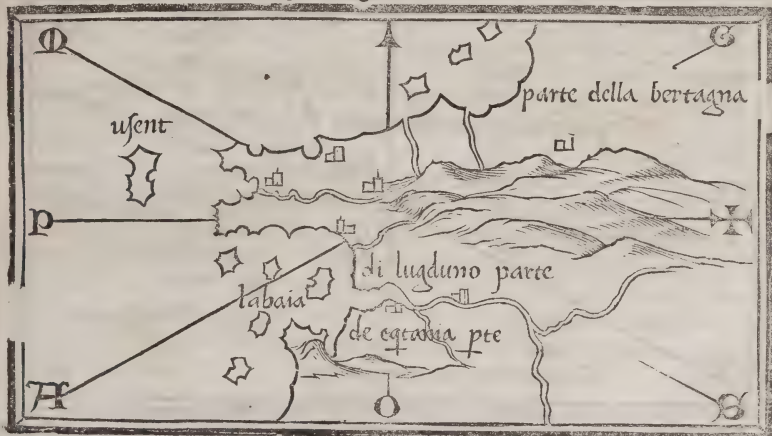 M
G
parte della bertagna
usent
P
di lugduno parte
labaia
de eqtania pte
A
O
S